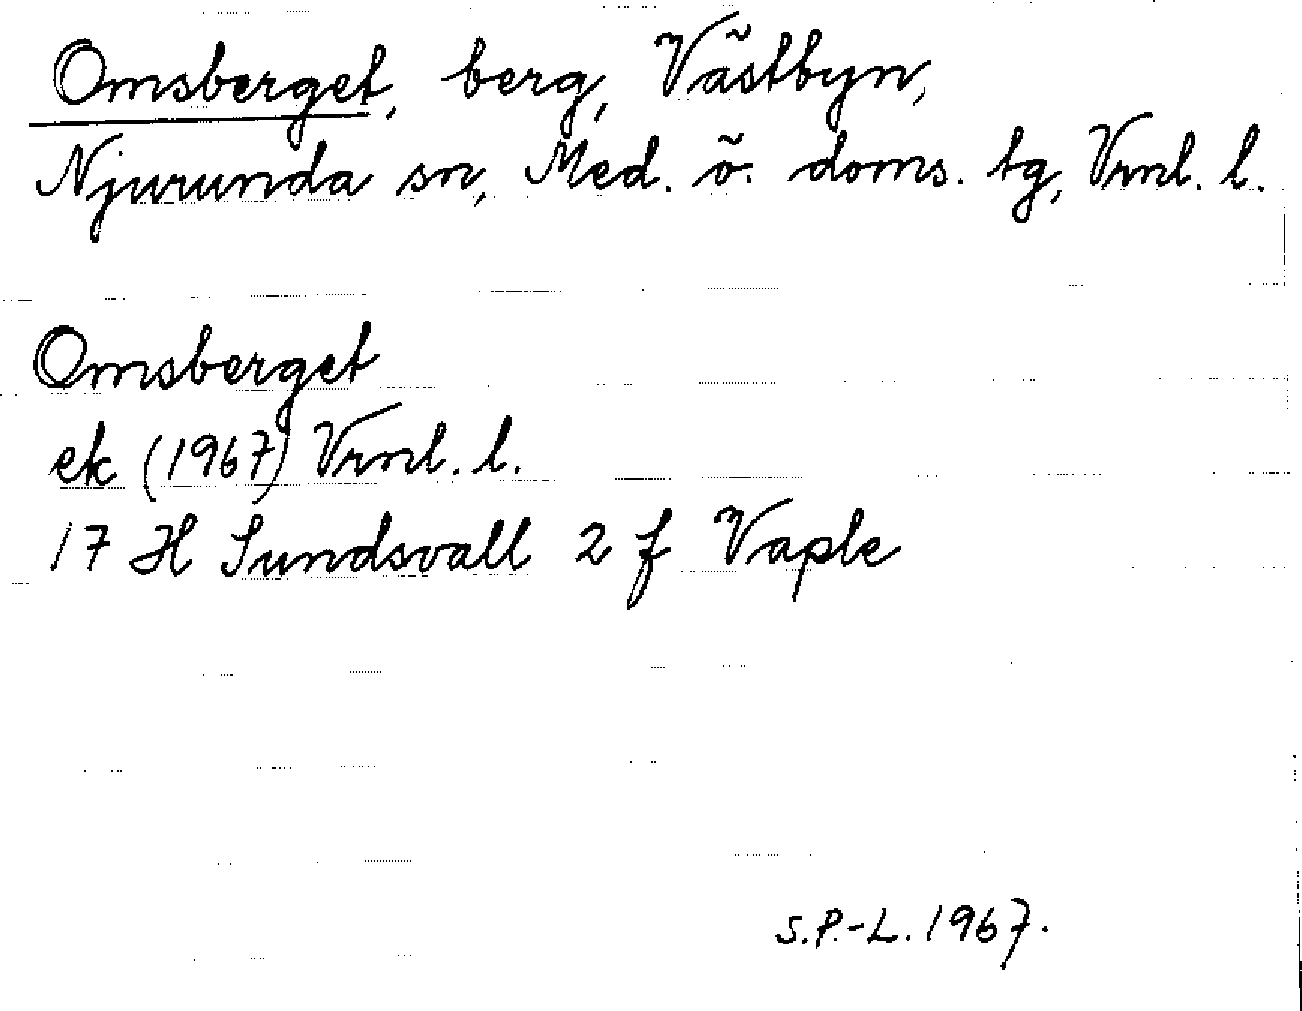 Omsberget, berg, Västbyn,
Njurunda sn, Med. ö. doms. tg, Vrnl. l.
Omsberget
ek (1967) Vrnl. l.
17 H Sundsvall 2 f Vaple
S.P.-L. 1967.